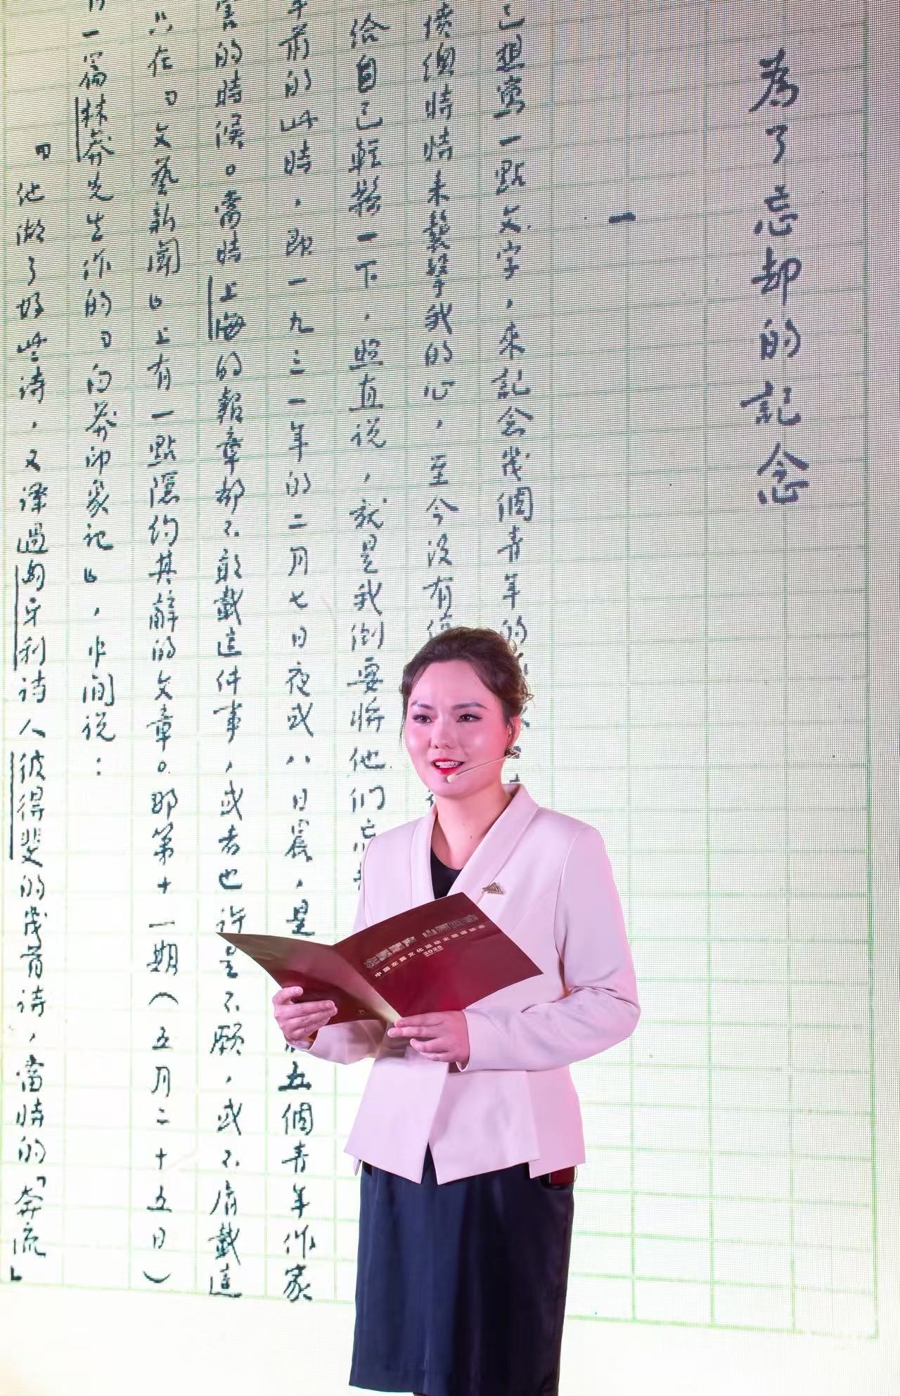 為了忘却的記念
一
己想寫一點文字，來記念幾個青年的
憤總時時來襲擊我的心，至今没有
給自己輕鬆一下，照直说，就是我倒要將他們忘
年前的此時，即一九三一年的二月七日夜或八日晨，是
五個青年作家
害的時候。當時上海的報章都不敢載這件事，或者也许是不願，或不屑載這
只在『文藝新聞』上有一點隱約其辭的文章。那第十一期（五月二十五日）
一篇林莽先生作的『白莽印象记』，中间说：
『他做了好些诗，又译過匈牙利诗人彼得斐的幾首诗，當時的「奔流」
2023